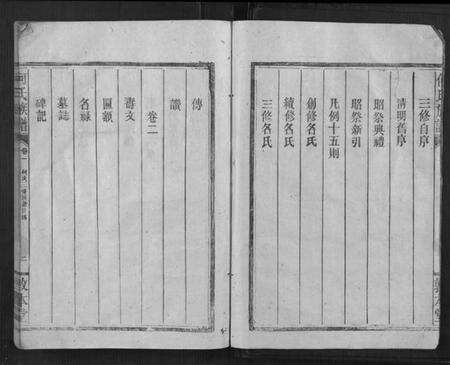 三修自序
清明舊序
昭祭典禮
昭祭新引
凡例十五則
創修名氏
續修名氏
三修名氏
傳
讚
卷二
壽文
匾額
名錄
墓誌
碑記
何氏族譜
卷一
敦本堂